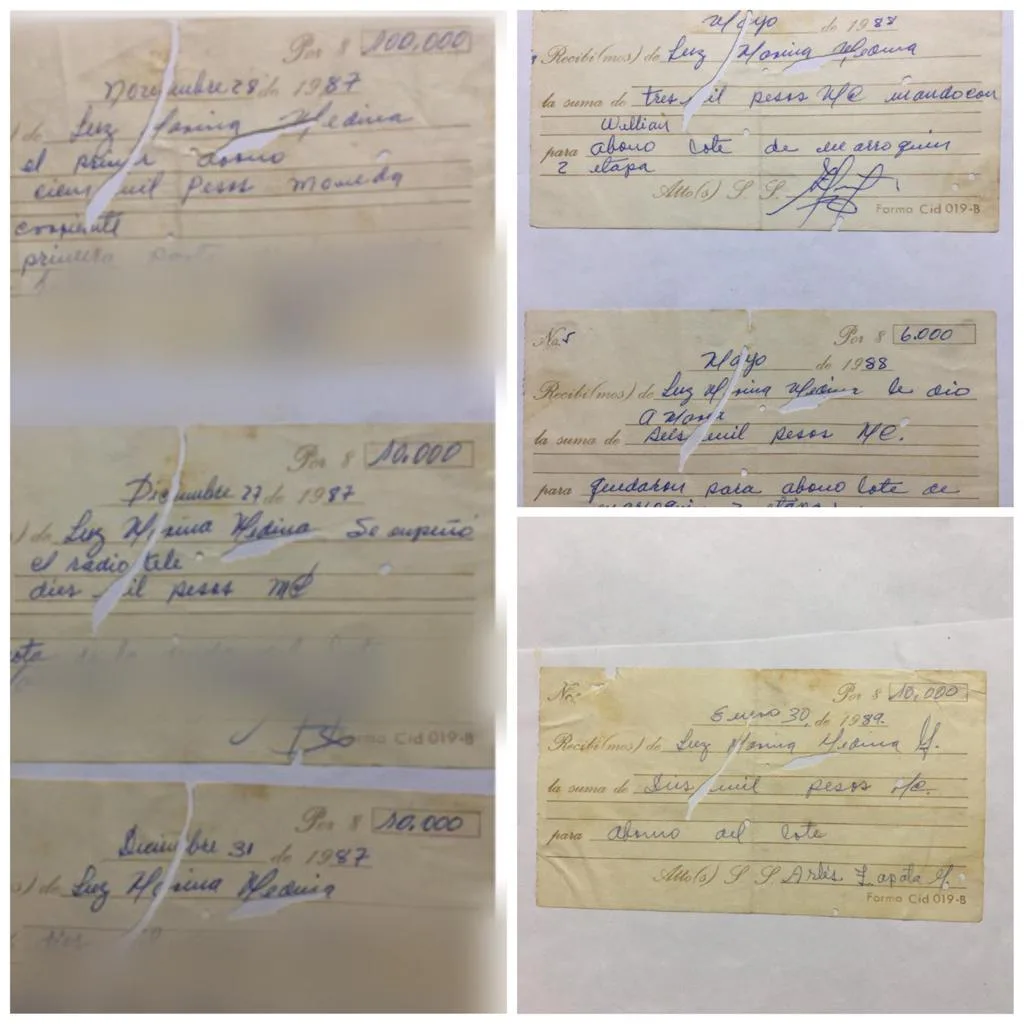 Por $ 100,000
Noviembre 28 de 1987
de Luz Marina Medina
el primer abono
cien mil Pesos Moneda
corriente
primera parte
Por $ 10.000
Diciembre 27 de 1987
de Luz Marina Medina Se empeñó
el radio tele
dies mil pesos MC
de 
Forma Cid 019-B
Por $ 10.000
Diciembre 31 de 1987
de Luz Marina Medina
Mayo de 1988
Recibí(mos) de Luz Marina Medina
la suma de tres mil pesos MC mando con
Willian
para abono lote de marroquin
2 etapa
Atto(s) S. S.
Forma Cid 019-B
No. 5 Por $ 6.000
Mayo de 1988
Recibí(mos) de Luz Marina Medina le dio
A Maria
la suma de seis mil pesos MC.
para quedaron para abono lote de
marroquin 2 etapa
No. Por $ 10,000
Enero 30, de 1989.
Recibí(mos) de Luz Marina Medina H.
la suma de Dies mil pesos M/C.
para abono del lote
Atto(s) S. S. Arles Zapata M.
Forma Cid 019-B